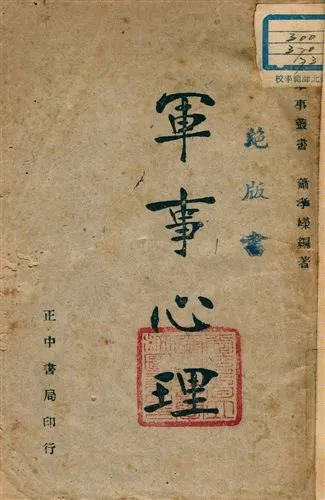 300
370
153
北師範學校
軍事叢書 蕭孝嶸編著
絕版書
軍事心理
正中書局印行